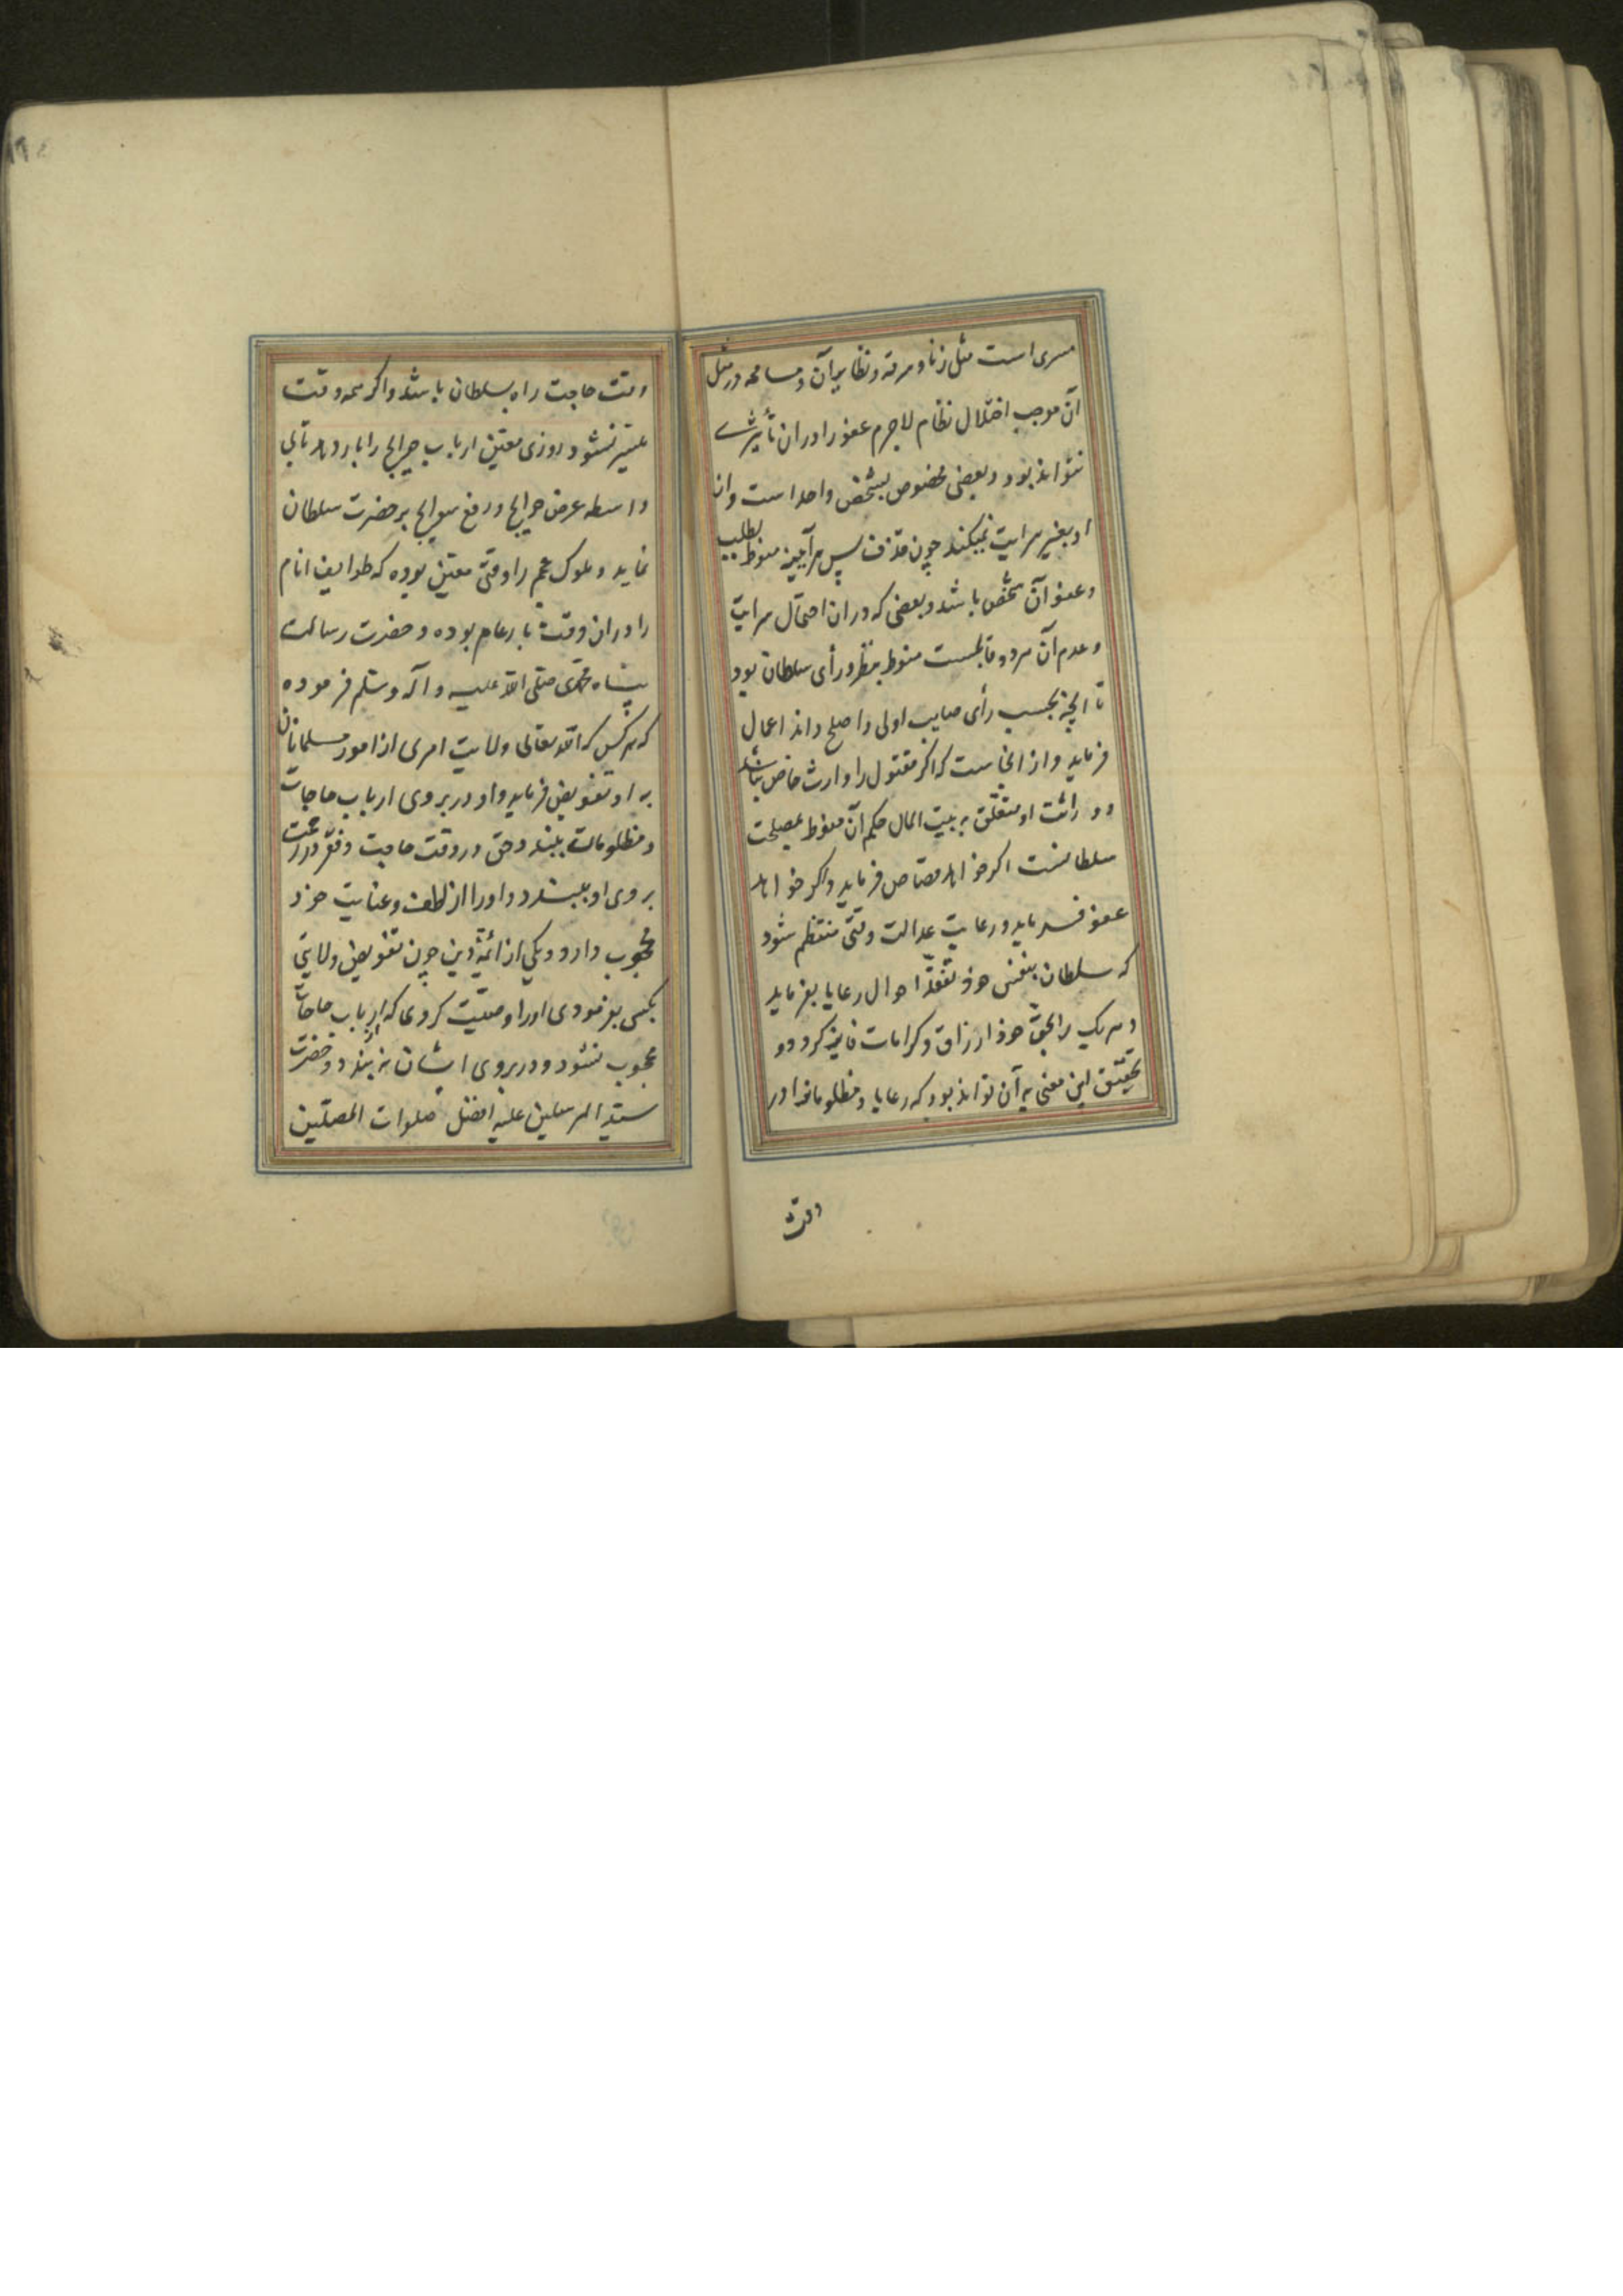 مسری است مثل زنا و سرقه و نظایر آن و مسامحه در مثل
آن موجب اختلال نظام لاجرم عفو را در ان تأثیری
نتواند بود و بعضی مخصوص بشخص واحد است و از
او بغیر سرایت نمیکند چون قذف پس هر آینه منوط بطلب
و عفو آن شخص باشد و بعضی که در ان احتمال سرایت
و عدم آن هر دو قایمست منوط بنظر و رأی سلطان بود
تا آنچه بحسب رأی صایب اولی و اصلح داند اعمال
فرماید و از انجاست که اگر مقتول را وارث خاص نباشد
و وراثت او متعلق به بیت المال حکم آن منوط بمصلحت
سلطانست اگر خواهد قصاص فرماید و اگر خواهد
عفو فرماید و رعایت عدالت وقتی منتظم شود
که سلطان بنفس خود تفقد احوال رعایا بفرماید
و هر یک را بحق خود از رزاق و کرامات فایز کردد و
تحقیق این معنی به آن تواند بود که رعایا و مظلومانرا در
وقت
وقت حاجت راه بسلطان باشد و اگر همه وقت
میسر نشود روزی معین ارباب حوایج را بار دهد تا بی
واسطه عرض حوایج و رفع سوایح بر حضرت سلطان
نماید و ملوک عجم را وقتی معین بوده که طوایف انام
را در ان وقت بار عام بوده و حضرت رسالت
پناه محمدی صلی الله علیه و آله و سلم فرموده
که هر کس که الله تعالی ولایت امری از امور مسلمانان
به او تفویض فرماید و او در بروی ارباب حاجات
و مظلومات ببندد حق در وقت حاجت و فقر در رحمت
بروی او ببندد و او را از لطف و عنایت خود
محجوب دارد و یکی از ائمهٔ دین چون تفویض ولایتی
بکسی بفرمودی او را وصیت کردی که از ارباب حاجات
محجوب نشود و در بروی ایشان نه بندد و حضرت
سید المرسلین علیه افضل صلوات المصلین